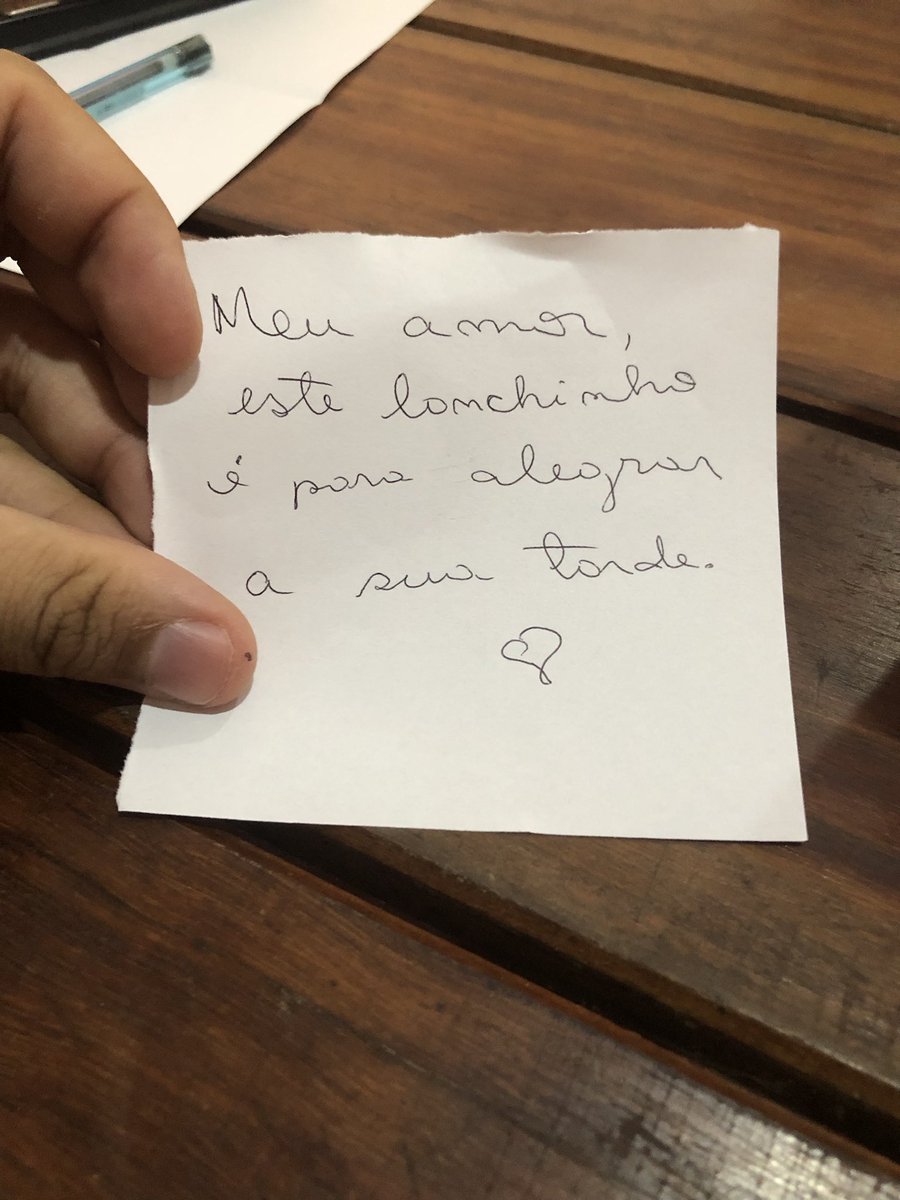 Meu amor,
este lanchinho
é para alegrar
a sua tarde.